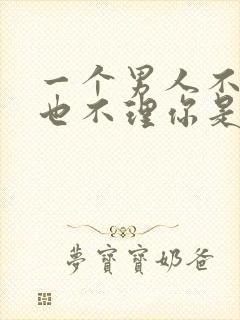 一个男人不
也不理你是
夢寶寶奶爸